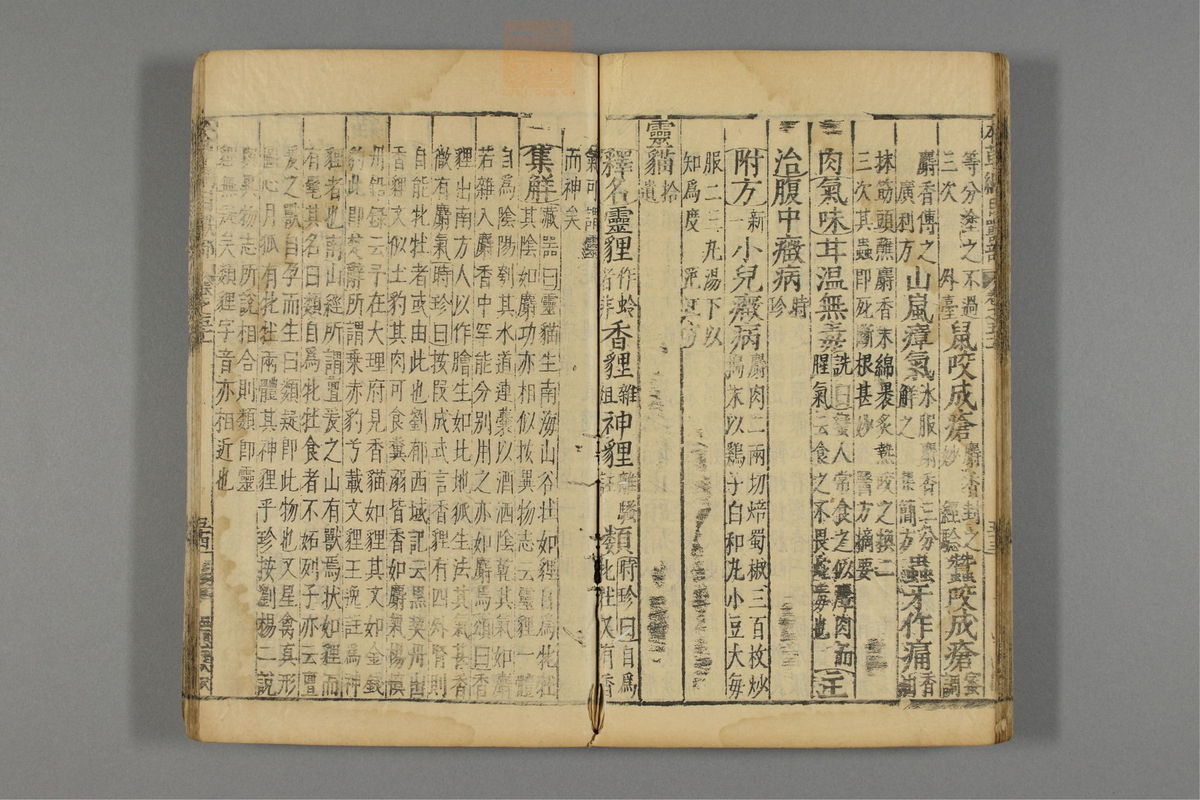 等分塗之不過三次 外臺 鼠咬成瘡 麝香封之妙 經驗 蠶咬成瘡 蜜調
麝香傅之 廣利方 山嵐瘴氣 水服麝香三分解之 集簡方 蟲牙作痛 香油
抹筋頭蘸麝香末綿裹炙熱咬之換二三次其蟲即死斷根甚妙 醫方摘要
肉氣味甘温無毒 詵曰蠻人常食之似麞肉而腥氣云食之不畏蛇毒也 主
治腹中癥病 時珍
附方 新一 小兒癥病 麝肉二兩切焙蜀椒三百枚炒搗末以鷄子白和丸小豆大每
服二三丸湯下以知爲度
靈貓 拾遺
釋名靈狸 作蛉者非 香狸 雜俎 神狸 離騷註 類 時珍曰自爲牝牡又有香
氣可謂靈而神矣
集解 藏器曰靈貓生南海山谷壯如狸自爲牝牡
其陰如麝功亦相似按異物志云靈狸一體
自爲陰陽刳其水道連囊以酒洒陰乾其氣如麝
若雜入麝香中罕能分别用之亦如麝焉頌曰香
狸出南方人以作膾生如北地狐生法其氣甚香
微有麝氣時珍曰按段成式言香狸有四外腎則
自能牝牡者或由此也劉郁西域記云黑契丹出
香狸文似土豹其肉可食糞溺皆香如麝氣楊愼
丹鉛錄云予在大理府見香貓如狸其文如金錢
豹此即楚辭所謂乘赤豹兮載文狸王逸註爲神
狸者也南山經所謂亶爰之山有獸焉狀如狸而
有髦其名曰類自爲牝牡食者不妬列子亦云亶
爰之獸自孕而生曰類疑即此物也又星禽真形
圖心月狐有牝牡兩體其神狸乎珍按劉楊二說
與異物志所說相合則類即靈
狸無疑矣類狸字音亦相近也